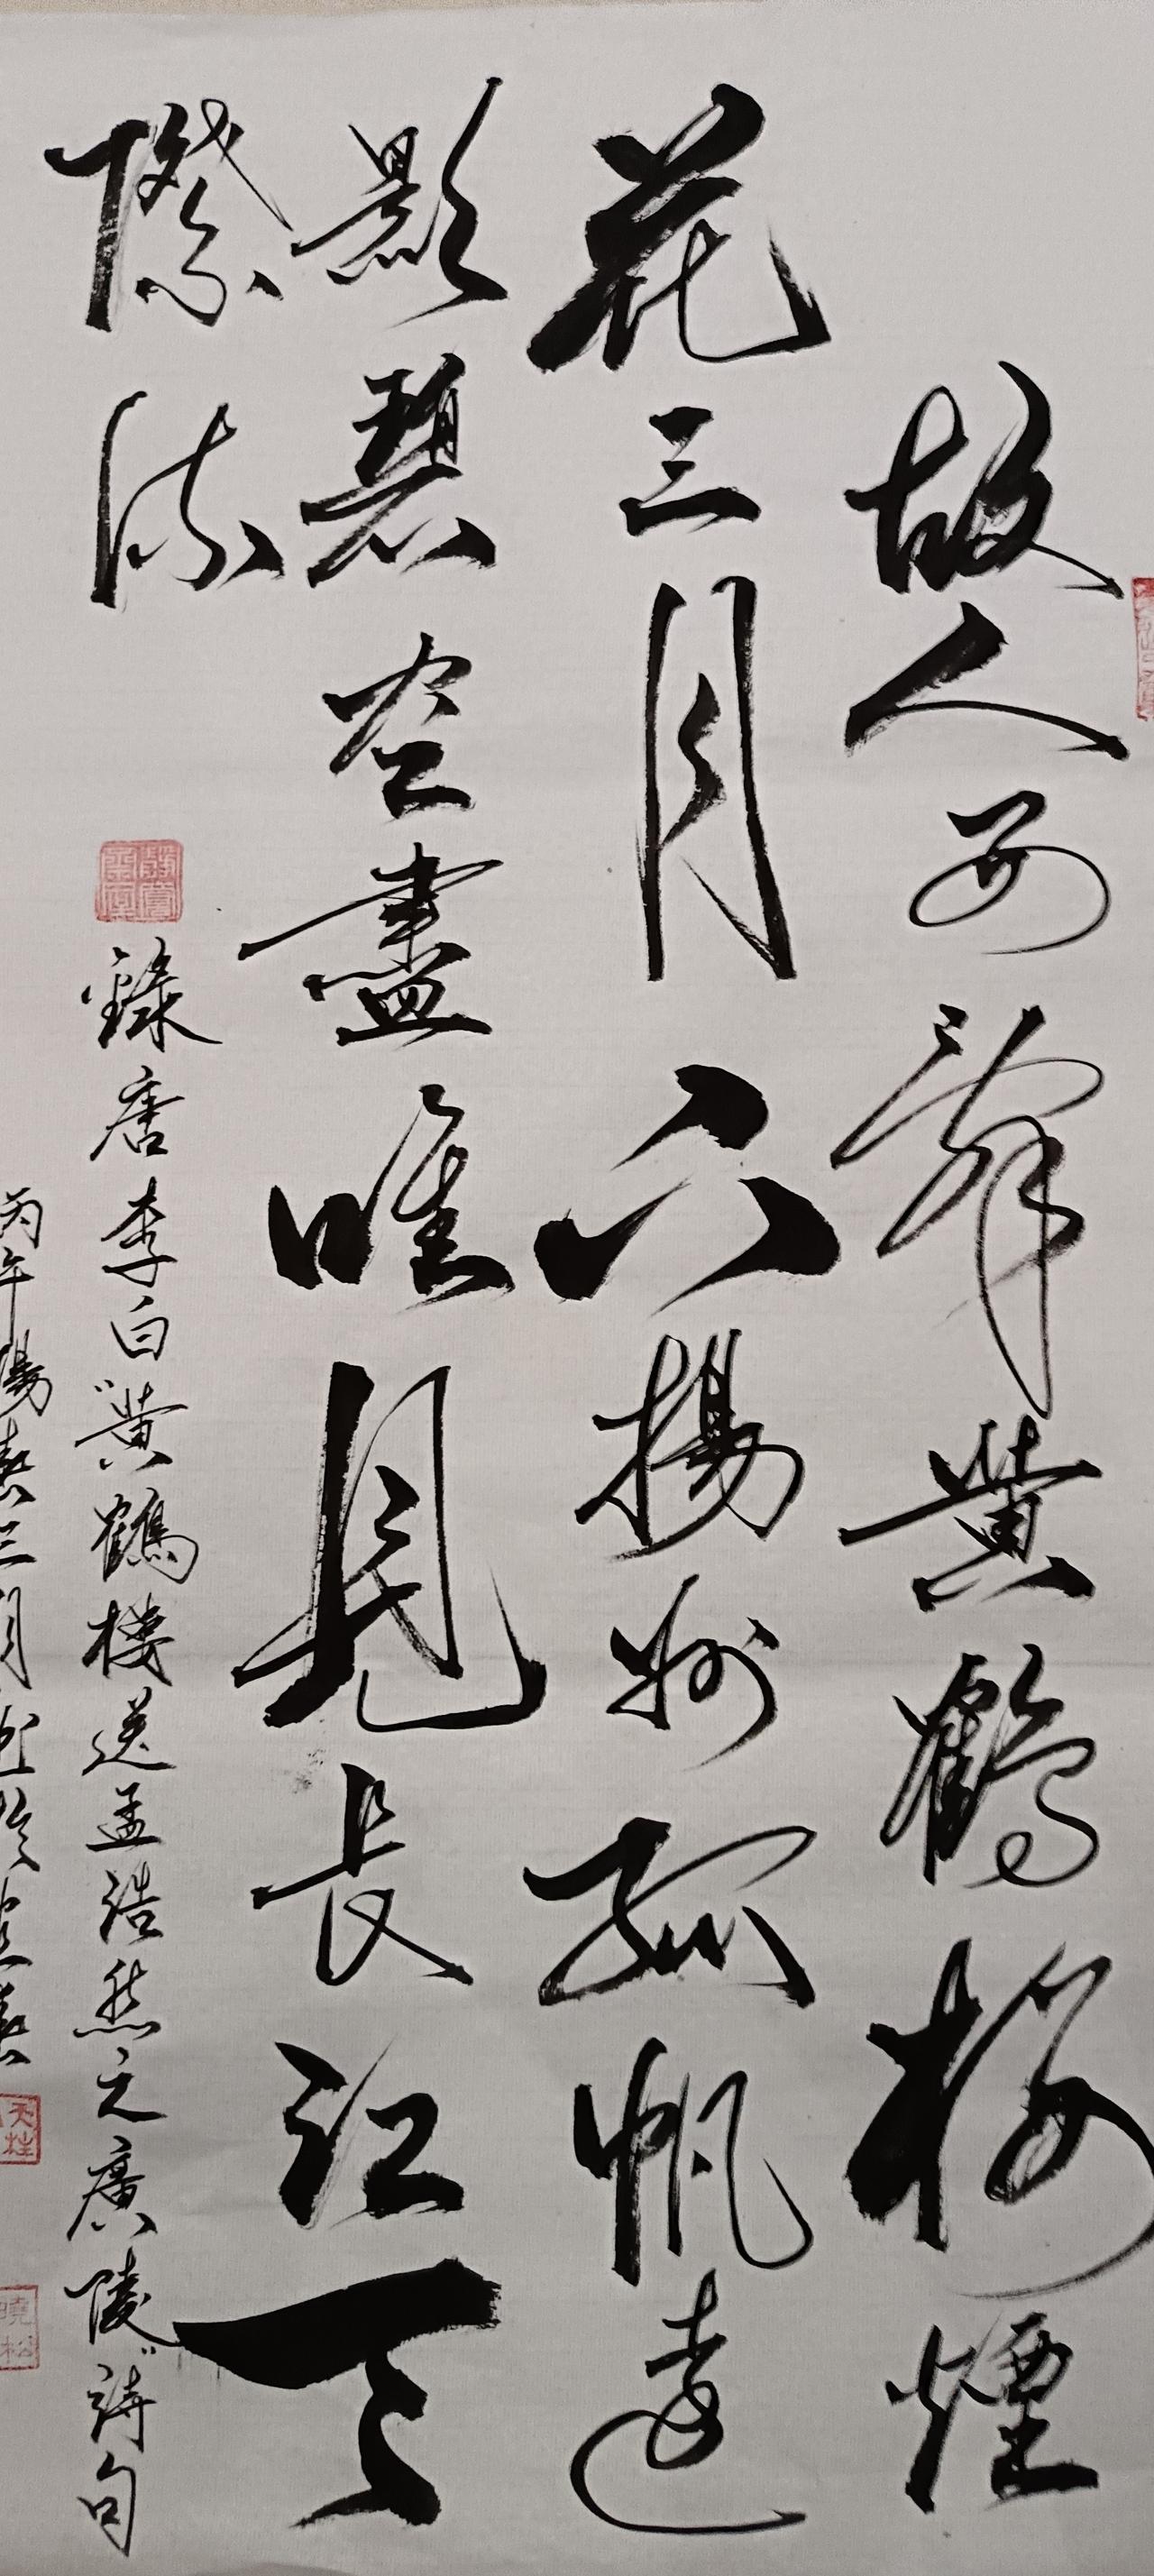 故人西辭黃鶴樓煙
花三月下揚州孤帆遠
影碧空盡唯見長江天
際流
錄唐李白"黃鶴樓送孟浩然之廣陵"詩句
丙午陽春三月
天柱
曉松